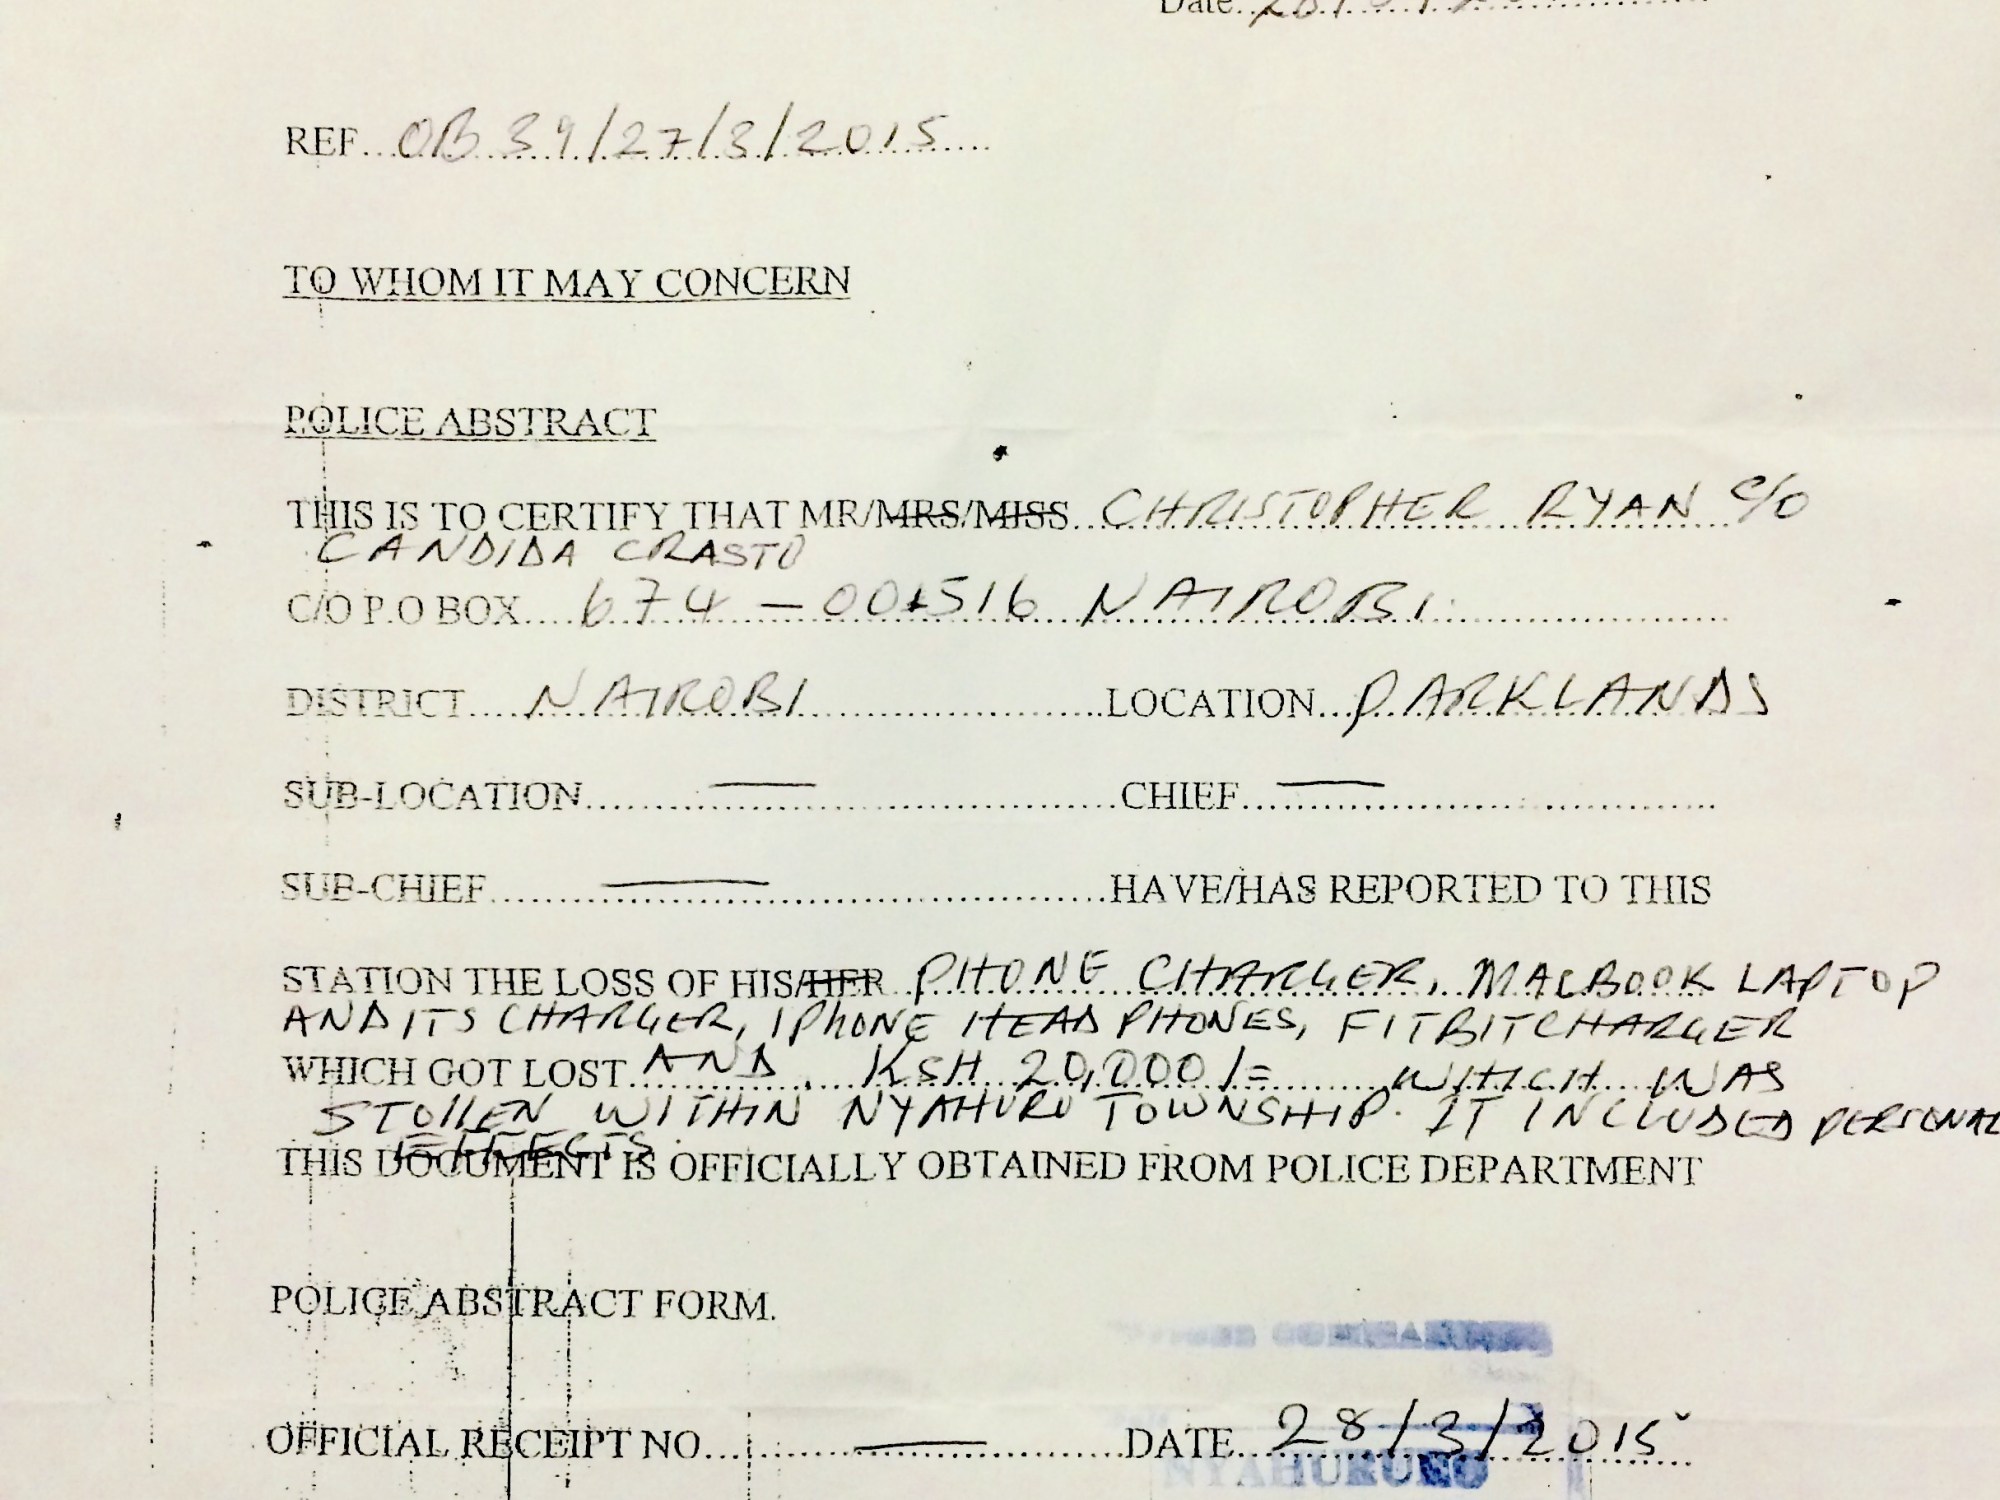 Date
REF...OB 39/27/3/2015
TO WHOM IT MAY CONCERN
POLICE ABSTRACT
THIS IS TO CERTIFY THAT MR/MRS/MISS CHRISTOPHER RYAN C/O
CANDIDA CRASTO
C/O P.O BOX....674 – 001516 NAIROBI
DISTRICT....NAIROBI LOCATION...PARKLANDS
SUB-LOCATION........ — ........CHIEF........ — ........
SUB-CHIEF........ — ........HAVE/HAS REPORTED TO THIS
STATION THE LOSS OF HIS/HER PHONE CHARGER, MACBOOK LAPTOP
AND ITS CHARGER, IPHONE HEAD PHONES, FITBIT CHARGER
WHICH GOT LOST AND KSH 20,000/= WHICH WAS
STOLLEN WITHIN NYAHURU TOWNSHIP. IT INCLUDED PERSONAL
EFFECTS.
THIS DOCUMENT IS OFFICIALLY OBTAINED FROM POLICE DEPARTMENT
POLICE ABSTRACT FORM.
OFFICIAL RECEIPT NO........ — ........DATE...28/3/2015
NYAHURURU